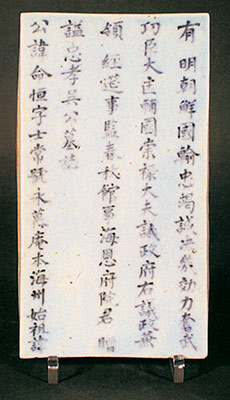 有明朝鮮國輸忠竭誠決幾効力奮武
功臣大匡輔國崇祿大夫議政府右議政兼
領 經筵事監春秋館事海恩府院君 贈
諡忠孝吳公墓誌
公諱命恒字士常號永慕庵本海州始祖諱